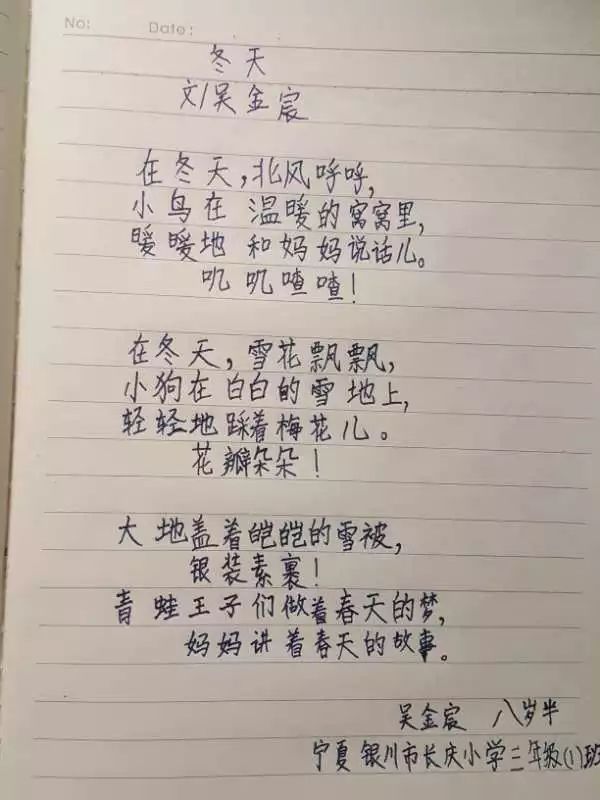 No: Date:
冬天
文/吴金宸
在冬天,北风呼呼,
小鸟在温暖的窝窝里,
暖暖地和妈妈说话儿。
叽叽喳喳!
在冬天,雪花飘飘,
小狗在白白的雪地上,
轻轻地踩着梅花儿。
花瓣朵朵!
大地盖着皑皑的雪被,
银装素裹!
青蛙王子们做着春天的梦,
妈妈讲着春天的故事。
吴金宸 八岁半
宁夏银川市长庆小学三年级(1)班